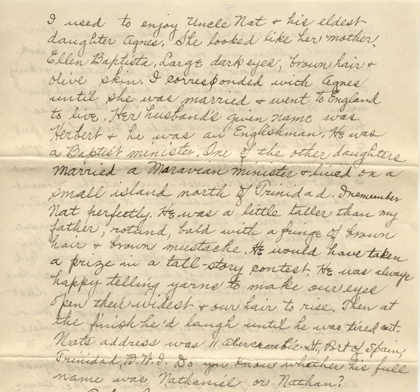 I used to enjoy Uncle Nat & his eldest
daughter Agnes. She looked like her mother,
Ellen Baptista. Large dark eyes, brown hair &
olive skin. I corresponded with Agnes
until she was married & went to England
to live. Her husband's given name was
Herbert & he was an Englishman. He was
a Baptist minister. One of the other daughters
married a Moravian minister & lived on a
small island north of Trinidad. I remember
Nat perfectly. He was a little taller than my
father, rotund, bald with a fringe of brown
hair & brown mustache. He would have taken
a prize in a tall-story contest. He was always
happy telling yarns to make our eyes
open their widest & our hair to rise. Then at
the finish he'd laugh until he was tired out.
Nat's address was 11 Abercrombie St., Port of Spain,
Trinidad, B.W.I. Do you know whether his full
name was Nathaniel or Nathan?